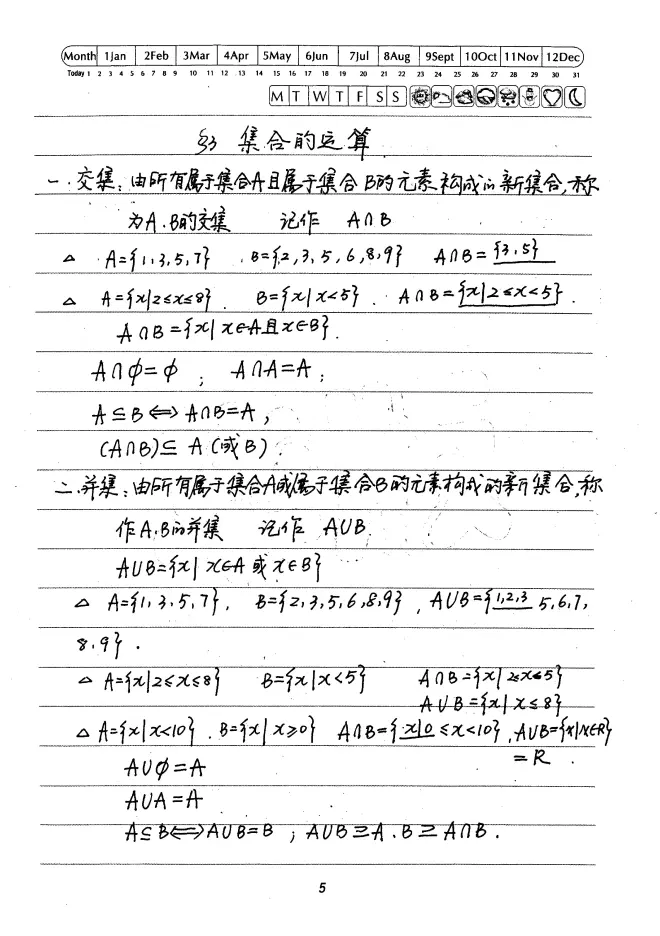 Month 1Jan 2Feb 3Mar 4Apr 5May 6Jun 7Jul 8Aug 9Sept 10Oct 11Nov 12Dec
Today 1 2 3 4 5 6 7 8 9 10 11 12 13 14 15 16 17 18 19 20 21 22 23 24 25 26 27 28 29 30 31
M T W T F S S
§3 集合的运算
一.交集:由所有属于集合A且属于集合B的元素构成的新集合,称
为A.B的交集 记作 A∩B
△ A={1,3,5,7} B={2,3,5,6,8,9} A∩B={3,5}
△ A={x|2≤x≤8} B={x|x<5} . A∩B={x|2≤x<5}.
A∩B={x|x∈A且x∈B}.
A∩φ=φ ; A∩A=A ;
A⊆B⟺A∩B=A ,
(A∩B)⊆A(或B).
二.并集:由所有属于集合A或属于集合B的元素构成的新集合,称
作A.B的并集 记作 A∪B.
A∪B={x|x∈A或x∈B}
△ A={1,3,5,7}, B={2,3,5,6,8,9}, A∪B={1,2,3 5,6,7,
8,9}.
△ A={x|2≤x≤8} B={x|x<5} A∩B={x|2≤x<5}
A∪B={x|x≤8}
△ A={x|x<10}. B={x|x≥0} A∩B={x|0≤x<10}, A∪B={x|x∈R}
=R .
A∪φ=A
A∪A=A
A⊆B⟺A∪B=B ; A∪B⊇A . B⊇A∩B .
5